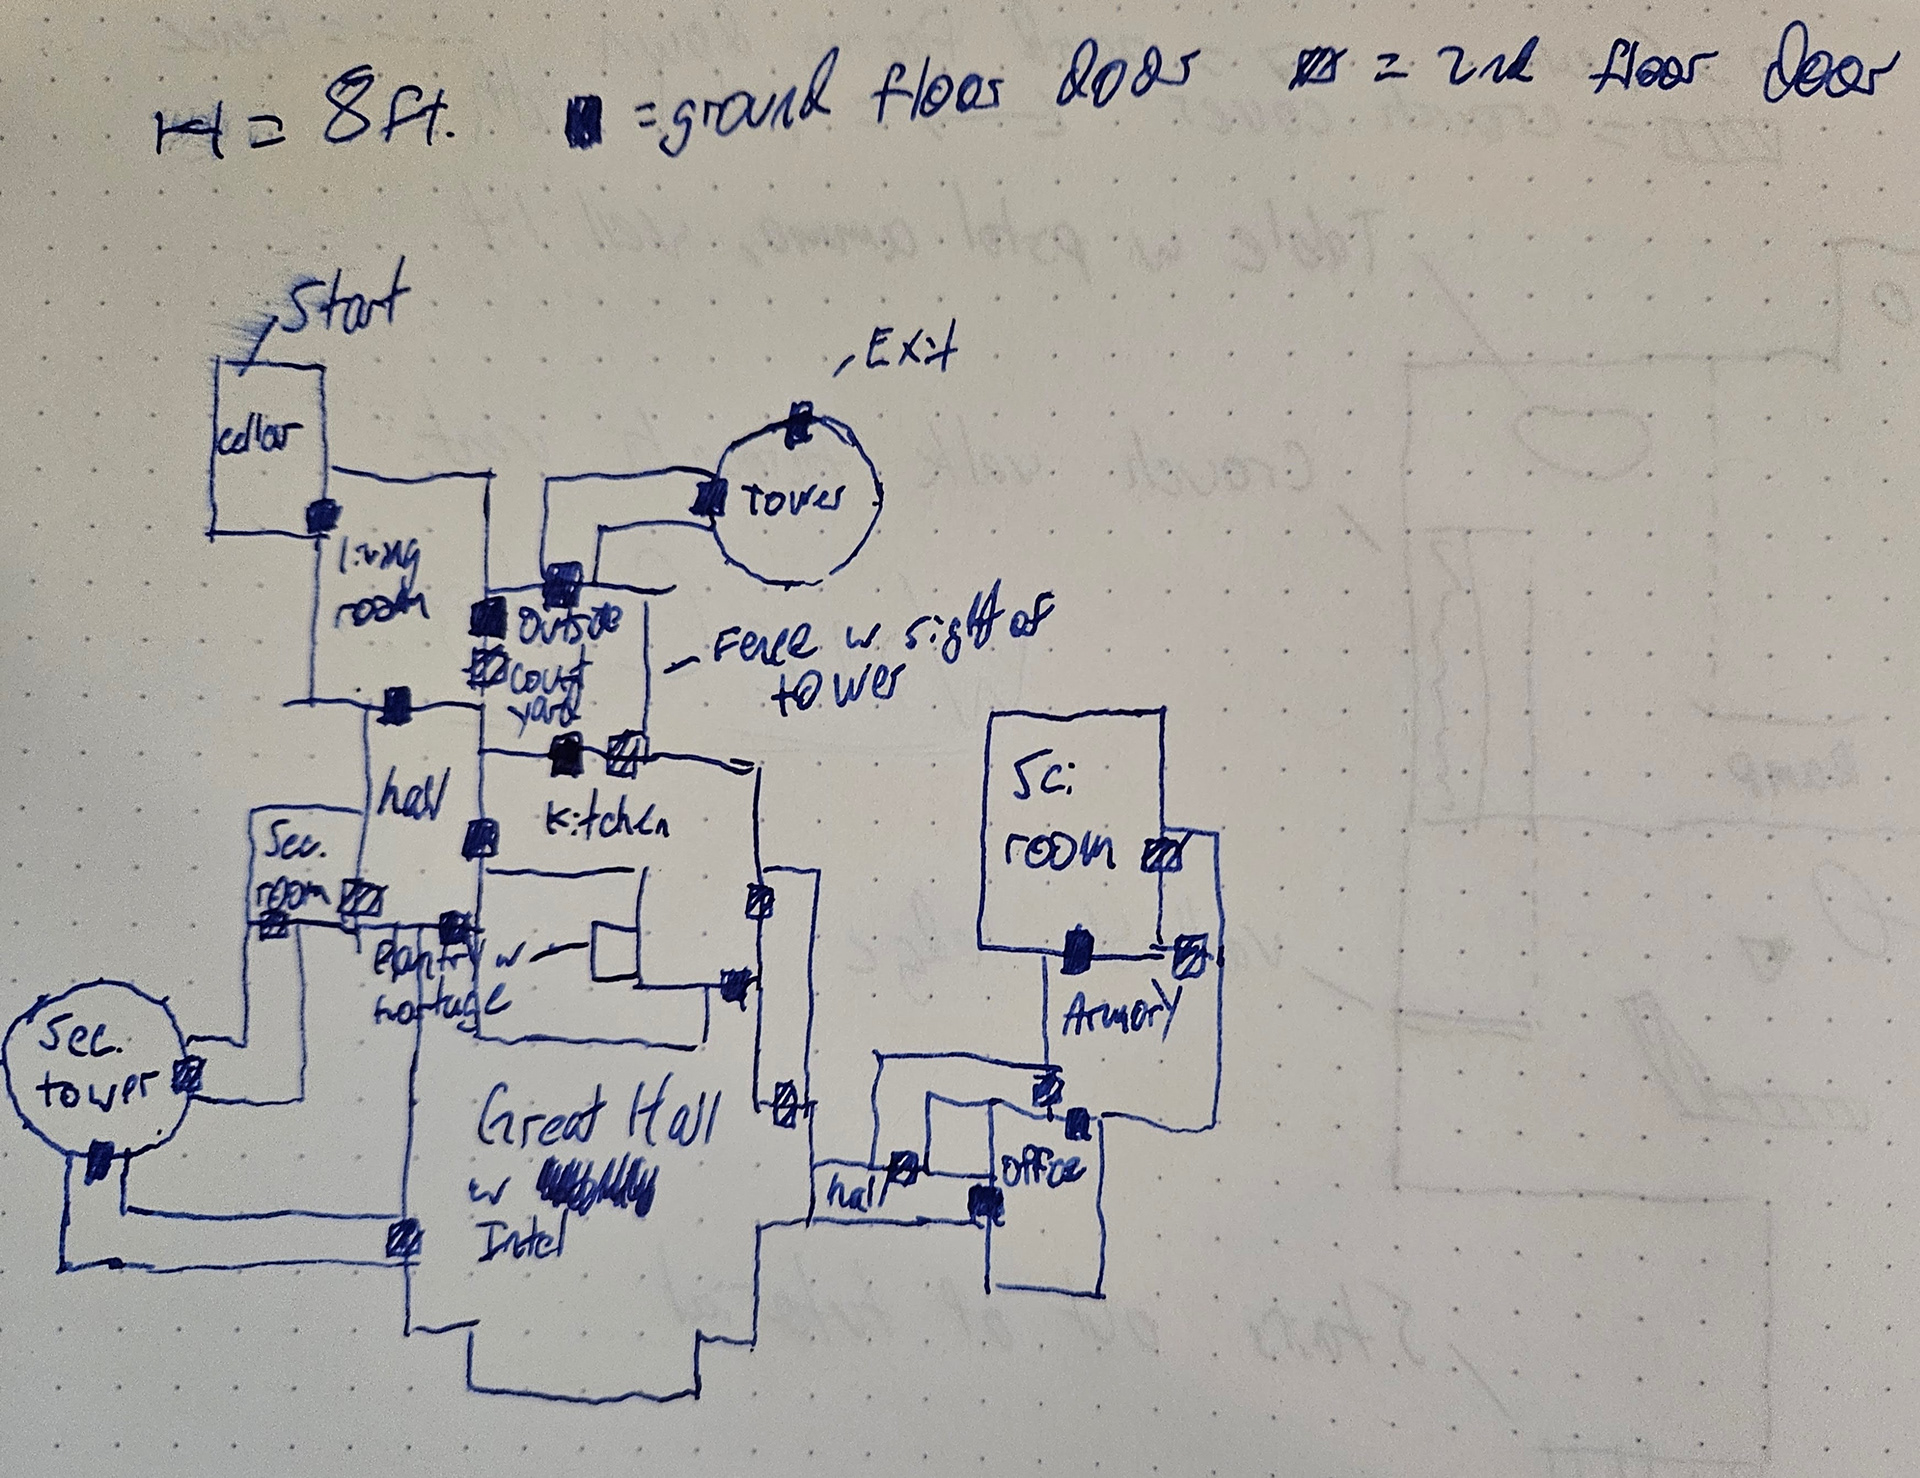 = 8ft. = ground floor door = 2nd floor door
Start
Exit
cellar
tower
living
room
Outside
court
yard
Fence w sight of
tower
hall
Kitchen
Sci
room
Sec.
room
Pantry w
hostage
Armory
Sec.
tower
Great Hall
w
Intel
hall
office